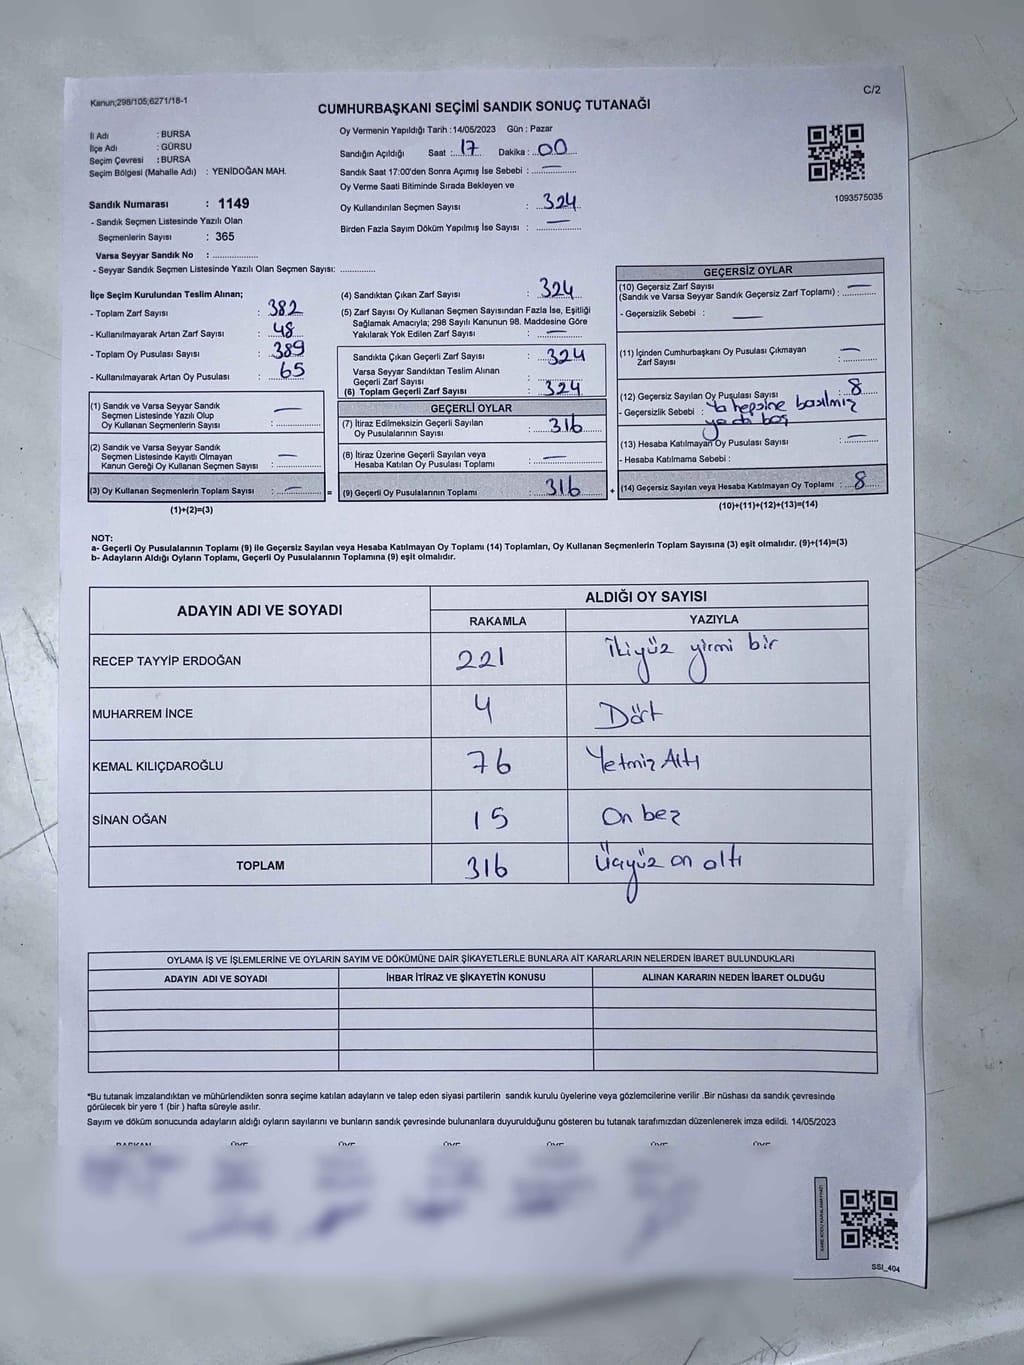 Kanun;298/105;6271/18-1
C/2
CUMHURBAŞKANI SEÇİMİ SANDIK SONUÇ TUTANAĞI
İl Adı : BURSA
İlçe Adı : GÜRSU
Seçim Çevresi : BURSA
Seçim Bölgesi (Mahalle Adı) : YENİDOĞAN MAH.
Sandık Numarası : 1149
- Sandık Seçmen Listesinde Yazılı Olan
Seçmenlerin Sayısı : 365
Varsa Seyyar Sandık No : ..............
- Seyyar Sandık Seçmen Listesinde Yazılı Olan Seçmen Sayısı: ..............
Oy Vermenin Yapıldığı Tarih : 14/05/2023 Gün : Pazar
Sandığın Açıldığı Saat : 17 Dakika : 00
Sandık Saat 17:00'den Sonra Açımış İse Sebebi : —
Oy Verme Saati Bitiminde Sırada Bekleyen ve
Oy Kullandırılan Seçmen Sayısı : 324
Birden Fazla Sayım Döküm Yapılmış İse Sayısı : —
1093575035
İlçe Seçim Kurulundan Teslim Alınan;
- Toplam Zarf Sayısı : 382
- Kullanılmayarak Artan Zarf Sayısı : 48
- Toplam Oy Pusulası Sayısı : 389
- Kullanılmayarak Artan Oy Pusulası : 65
(1) Sandık ve Varsa Seyyar Sandık
Seçmen Listesinde Yazılı Olup
Oy Kullanan Seçmenlerin Sayısı : —
(2) Sandık ve Varsa Seyyar Sandık
Seçmen Listesinde Kayıtlı Olmayan
Kanun Gereği Oy Kullanan Seçmen Sayısı : —
(3) Oy Kullanan Seçmenlerin Toplam Sayısı : —
(1)+(2)=(3)
(4) Sandıktan Çıkan Zarf Sayısı : 324
(5) Zarf Sayısı Oy Kullanan Seçmen Sayısından Fazla İse, Eşitliği
Sağlamak Amacıyla; 298 Sayılı Kanunun 98. Maddesine Göre
Yakılarak Yok Edilen Zarf Sayısı : —
Sandıkta Çıkan Geçerli Zarf Sayısı : 324
Varsa Seyyar Sandıktan Teslim Alınan
Geçerli Zarf Sayısı : ..............
(6) Toplam Geçerli Zarf Sayısı : 324
GEÇERLİ OYLAR
(7) İtiraz Edilmeksizin Geçerli Sayılan
Oy Pusulalarının Sayısı : 316
(8) İtiraz Üzerine Geçerli Sayılan veya
Hesaba Katılan Oy Pusulası Toplamı : —
= (9) Geçerli Oy Pusulalarının Toplamı : 316 +
GEÇERSİZ OYLAR
(10) Geçersiz Zarf Sayısı
(Sandık ve Varsa Seyyar Sandık Geçersiz Zarf Toplamı) : —
- Geçersizlik Sebebi : —
(11) İçinden Cumhurbaşkanı Oy Pusulası Çıkmayan
Zarf Sayısı : —
(12) Geçersiz Sayılan Oy Pusulası Sayısı : 8
- Geçersizlik Sebebi : ya hepsine basılmış
ya da boş
(13) Hesaba Katılmayan Oy Pusulası Sayısı : —
- Hesaba Katılmama Sebebi :
(14) Geçersiz Sayılan veya Hesaba Katılmayan Oy Toplamı : 8
(10)+(11)+(12)+(13)=(14)
NOT:
a- Geçerli Oy Pusulalarının Toplamı (9) ile Geçersiz Sayılan veya Hesaba Katılmayan Oy Toplamı (14) Toplamları, Oy Kullanan Seçmenlerin Toplam Sayısına (3) eşit olmalıdır. (9)+(14)=(3)
b- Adayların Aldığı Oyların Toplamı, Geçerli Oy Pusulalarının Toplamına (9) eşit olmalıdır.
ADAYIN ADI VE SOYADI
ALDIĞI OY SAYISI
RAKAMLA YAZIYLA
RECEP TAYYİP ERDOĞAN 221 İkiyüz yirmi bir
MUHARREM İNCE 4 Dört
KEMAL KILIÇDAROĞLU 76 Yetmiş Altı
SİNAN OĞAN 15 On beş
TOPLAM 316 Üçyüz on altı
OYLAMA İŞ VE İŞLEMLERİNE VE OYLARIN SAYIM VE DÖKÜMÜNE DAİR ŞİKAYETLERLE BUNLARA AİT KARARLARIN NELERDEN İBARET BULUNDUKLARI
ADAYIN ADI VE SOYADI İHBAR İTİRAZ VE ŞİKAYETİN KONUSU ALINAN KARARIN NEDEN İBARET OLDUĞU
*Bu tutanak imzalandıktan ve mühürlendikten sonra seçime katılan adayların ve talep eden siyasi partilerin sandık kurulu üyelerine veya gözlemcilerine verilir .Bir nüshası da sandık çevresinde
görülecek bir yere 1 (bir ) hafta süreyle asılır.
Sayım ve döküm sonucunda adayların aldığı oyların sayılarını ve bunların sandık çevresinde bulunanlara duyurulduğunu gösteren bu tutanak tarafımızdan düzenlenerek imza edildi. 14/05/2023
SSI_404